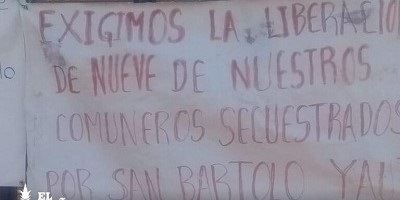 EXIGIMOS LA LIBERACIO
DE NUEVE DE NUESTROS
COMUNEROS SECUESTRADOS
POR SAN BARTOLO YAU
EL